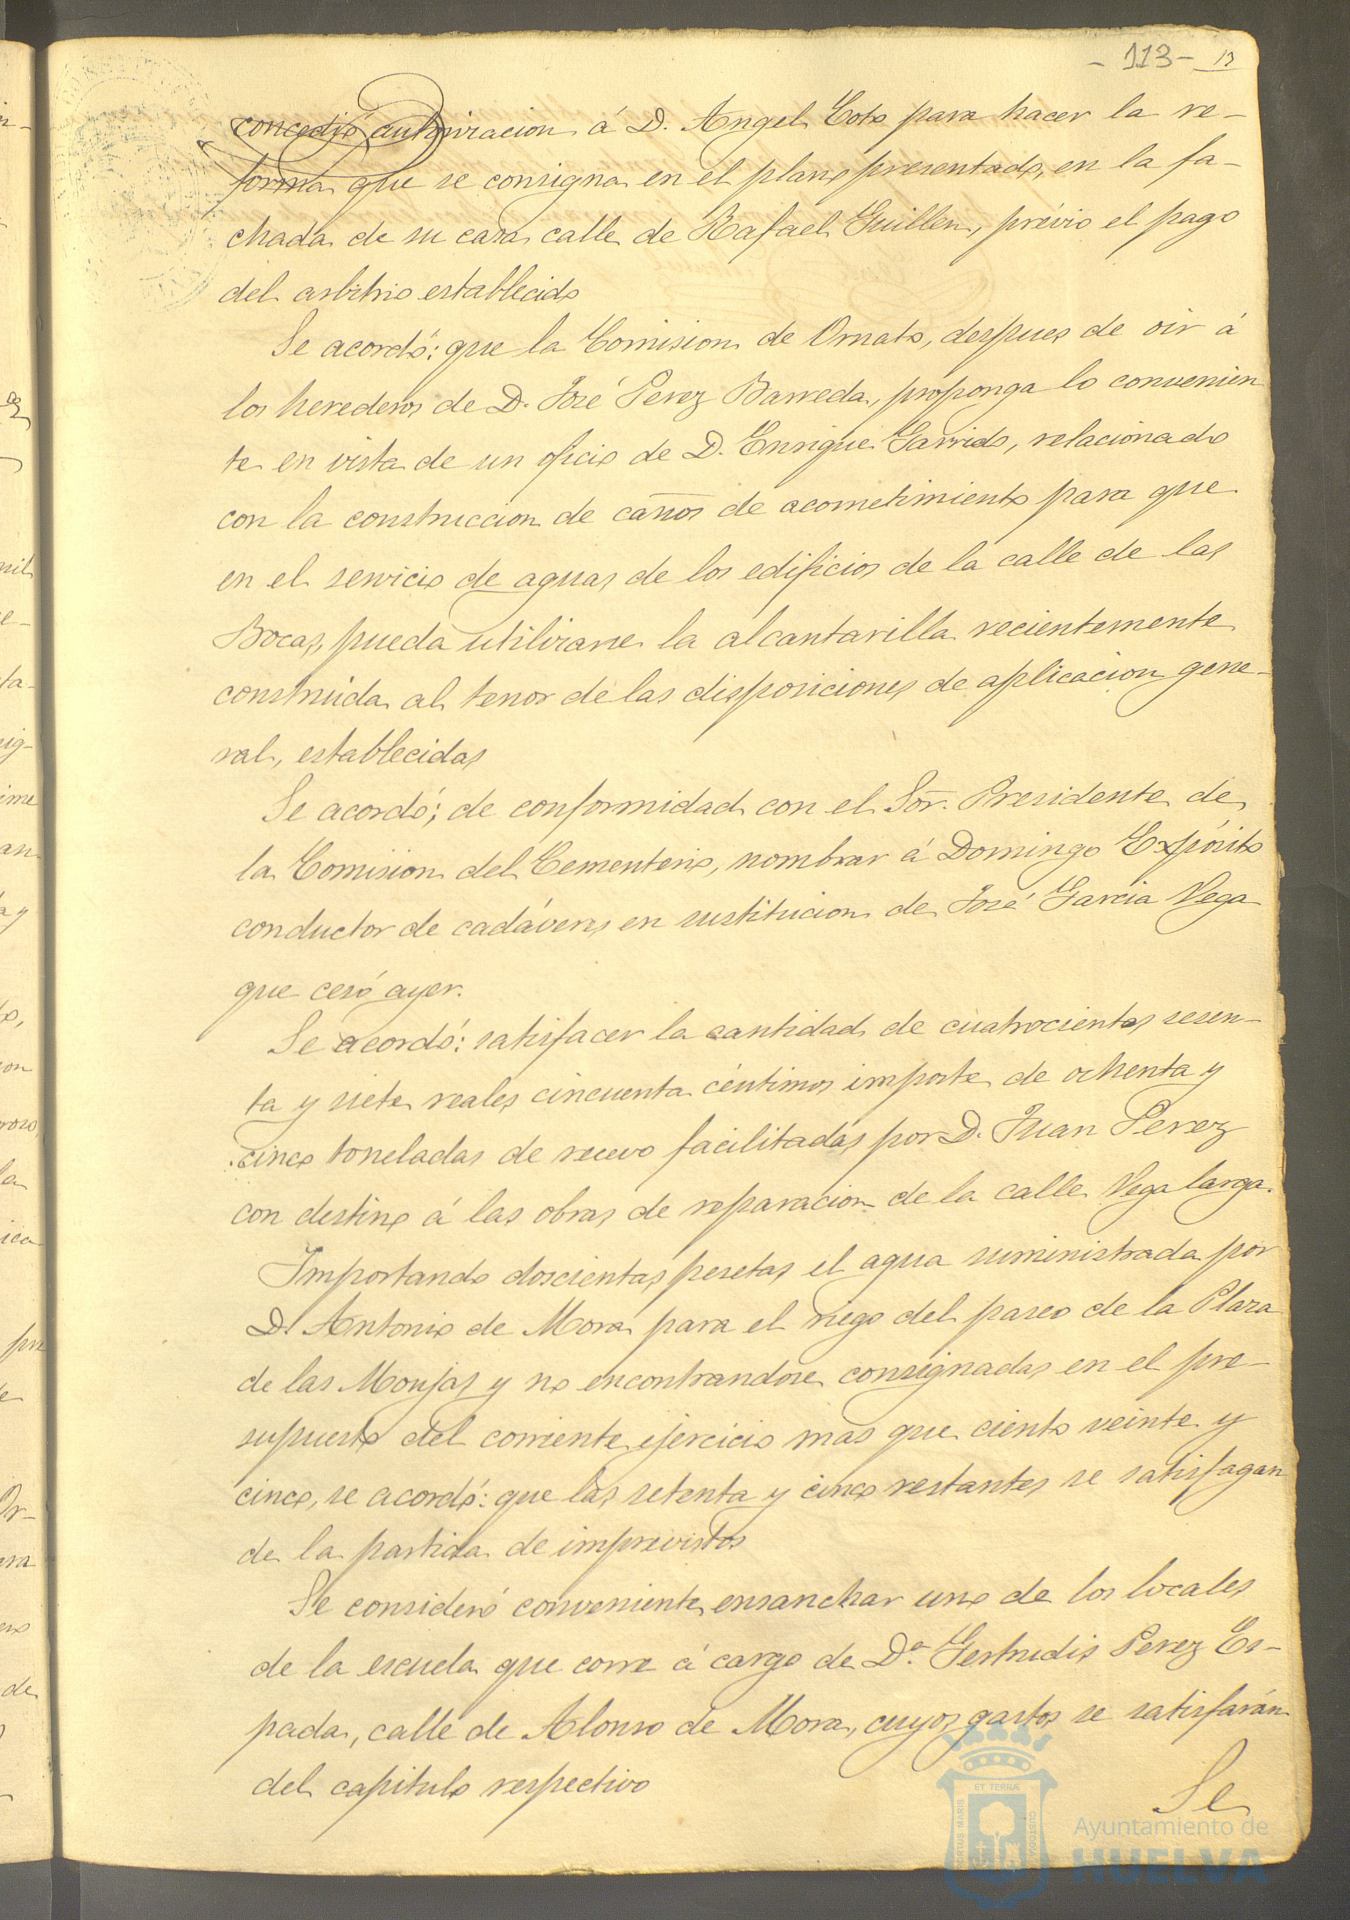 - 113 - 13
concedió autorizacion á D. Angel Coto para hacer la re-
forma que se consigna en el plano presentado, en la fa-
chada de su casa calle de Rafael Guillen, prévio el pago
del arbitrio establecido
Se acordó: que la Comision de Ornato, despues de oir á
los herederos de D. José Perez Barreda, proponga lo convenien
te en vista de un oficio de D. Enrique Garrido, relacionado
con la construccion de caños de acometimiento para que
en el servicio de aguas de los edificios de la calle de las
Bocas, pueda utilizarse la alcantarilla recientemente
construida al tenor de las disposiciones de aplicacion gene-
ral, establecidas
Se acordó; de conformidad con el Sor. Presidente de
la Comision del Cementerio, nombrar á Domingo Expósito
conductor de cadáveres en sustitucion de José Garcia Vega
que cesó ayer.
Se acordó: satisfacer la cantidad de cuatrocientos sesen-
ta y siete reales cincuenta céntimos importe de ochenta y
cinco toneladas de recevo facilitadas por D. Juan Perez
con destino á las obras de reparacion de la calle Vega larga.
Importando doscientas pesetas el agua suministrada por
D. Antonio de Mora para el riego del paseo de la Plaza
de las Monjas y no encontrandose consignadas en el pre-
supuesto del corriente ejercicio mas que ciento veinte y
cinco, se acordó: que las setenta y cinco restantes se satisfagan
de la partida de imprevistos
Se consideró conveniente ensanchar uno de los locales
de la escuela que corre á cargo de Dª. Gertrudis Perez Es-
pada, calle de Alonso de Mora, cuyos gastos se satisfarán
del capitulo respectivo
Se
Ayuntamiento de
HUELVA